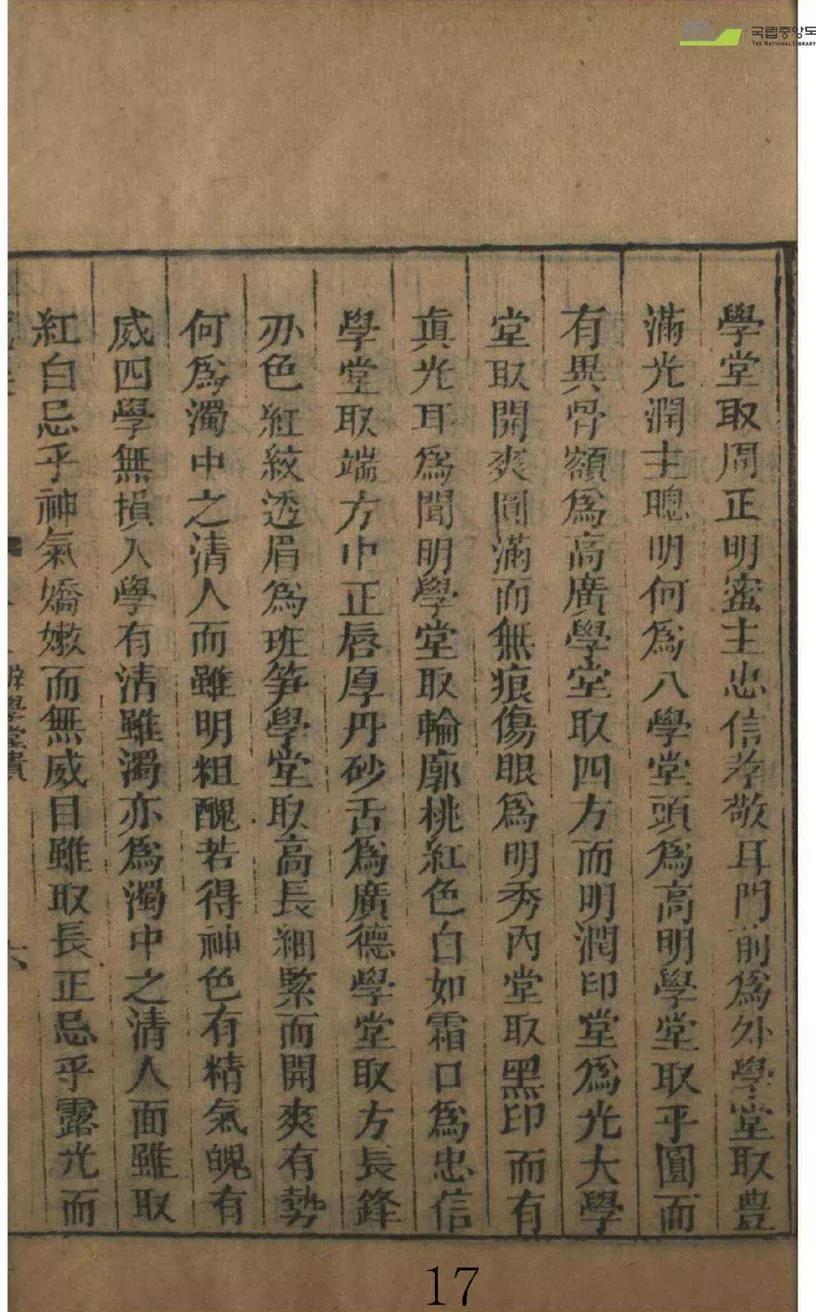 국립중앙도
THE NATIONAL LIBRARY
學堂取周正明蜜主忠信孝敬耳門前爲外學堂取豊
滿光潤主聰明何爲八學堂頭爲高明學堂取乎圓而
有異骨額爲高廣學堂取四方而明潤印堂爲光大學
堂取開爽圓滿而無痕傷眼爲明秀內堂取黑印而有
眞光耳爲聞明學堂取輪廓桃紅色白如霜口爲忠信
學堂取端方中正唇厚丹砂舌爲廣德學堂取方長鋒
刃色紅紋透眉爲班笋學堂取高長細緊而開爽有勢
何爲濁中之清人而雖明粗醜若得神色有精氣魄有
威四學無損入學有清雖濁亦爲濁中之清人面雖取
紅白忌乎神氣嬌嫩而無威目雖取長正忌乎露光而
學堂
六
17